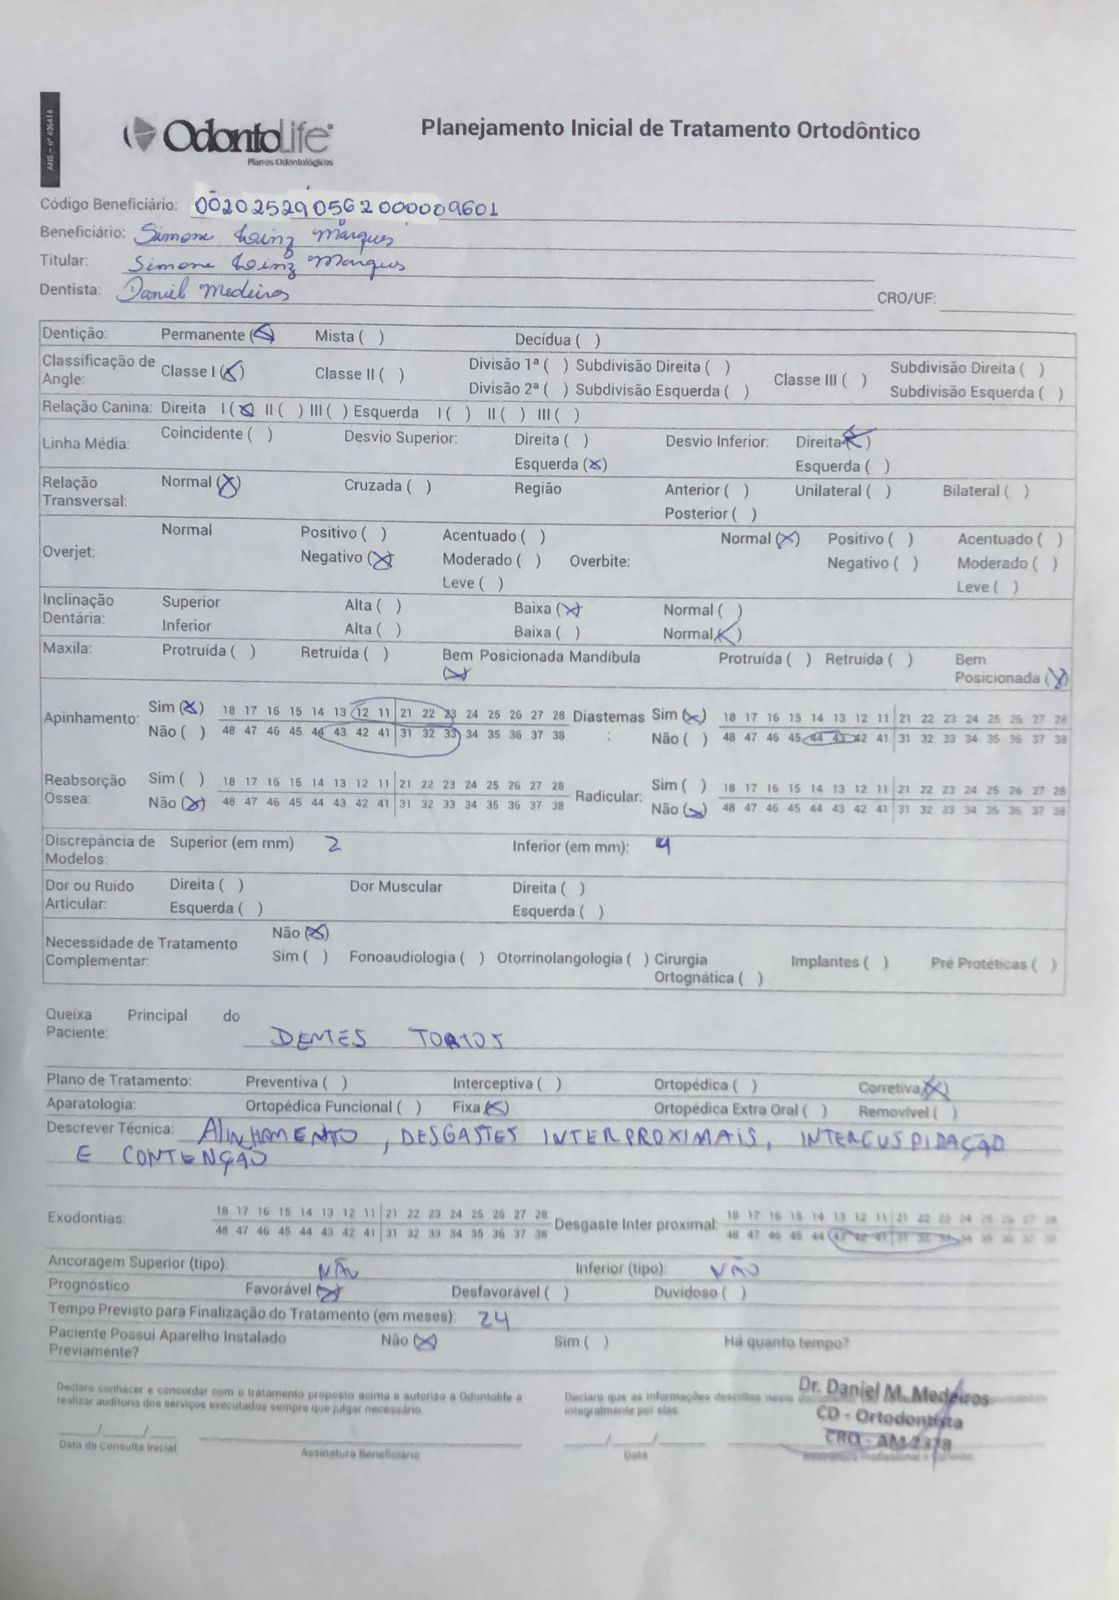 ANS - nº 406414
OdontoLife
Planos Odontológicos
Planejamento Inicial de Tratamento Ortodôntico
Código Beneficiário: 002025290562000009601
Beneficiário: Simone Marques
Titular: Simone Marques
Dentista: Daniel Medeiros CRO/UF:
Dentição: Permanente (X) Mista ( ) Decídua ( )
Classificação de Angle: Classe I (X) Classe II ( ) Divisão 1ª ( ) Subdivisão Direita ( ) Classe III ( ) Subdivisão Direita ( )
Divisão 2ª ( ) Subdivisão Esquerda ( ) Subdivisão Esquerda ( )
Relação Canina: Direita I (X) II ( ) III ( ) Esquerda I ( ) II ( ) III ( )
Linha Média: Coincidente ( ) Desvio Superior: Direita ( ) Desvio Inferior: Direita (X)
Esquerda (X) Esquerda ( )
Relação Transversal: Normal (X) Cruzada ( ) Região Anterior ( ) Unilateral ( ) Bilateral ( )
Posterior ( )
Overjet: Normal Positivo ( ) Acentuado ( ) Overbite: Normal (X) Positivo ( ) Acentuado ( )
Negativo (X) Moderado ( ) Negativo ( ) Moderado ( )
Leve ( ) Leve ( )
Inclinação Dentária: Superior Alta ( ) Baixa (X) Normal ( )
Inferior Alta ( ) Baixa ( ) Normal (X)
Maxila: Protruída ( ) Retruída ( ) Bem Posicionada (X) Mandíbula Protruída ( ) Retruída ( ) Bem Posicionada (X)
Apinhamento: Sim (X) 18 17 16 15 14 13 12 11 21 22 23 24 25 26 27 28 Diastemas: Sim (X) 18 17 16 15 14 13 12 11 21 22 23 24 25 26 27 28
Não ( ) 48 47 46 45 44 43 42 41 31 32 33 34 35 36 37 38 Não ( ) 48 47 46 45 44 43 42 41 31 32 33 34 35 36 37 38
Reabsorção Óssea: Sim ( ) 18 17 16 15 14 13 12 11 21 22 23 24 25 26 27 28 Radicular: Sim ( ) 18 17 16 15 14 13 12 11 21 22 23 24 25 26 27 28
Não (X) 48 47 46 45 44 43 42 41 31 32 33 34 35 36 37 38 Não (X) 48 47 46 45 44 43 42 41 31 32 33 34 35 36 37 38
Discrepância de Modelos: Superior (em mm) 2 Inferior (em mm): 4
Dor ou Ruído Articular: Direita ( ) Dor Muscular Direita ( )
Esquerda ( ) Esquerda ( )
Necessidade de Tratamento Complementar: Não (X)
Sim ( ) Fonoaudiologia ( ) Otorrinolangologia ( ) Cirurgia Ortognática ( ) Implantes ( ) Pré Protéticas ( )
Queixa Principal do Paciente: DENTES TORTOS
Plano de Tratamento: Preventiva ( ) Interceptiva ( ) Ortopédica ( ) Corretiva (X)
Aparatologia: Ortopédica Funcional ( ) Fixa (X) Ortopédica Extra Oral ( ) Removível ( )
Descrever Técnica: ALINHAMENTO, DESGASTES INTERPROXIMAIS, INTERCUSPIDAÇÃO
E CONTENÇÃO
Exodontias: 18 17 16 15 14 13 12 11 21 22 23 24 25 26 27 28 Desgaste Inter proximal: 18 17 16 15 14 13 12 11 21 22 23 24 25 26 27 28
48 47 46 45 44 43 42 41 31 32 33 34 35 36 37 38 48 47 46 45 44 43 42 41 31 32 33 34 35 36 37 38
Ancoragem Superior (tipo): NÃO Inferior (tipo): NÃO
Prognóstico Favorável (X) Desfavorável ( ) Duvidoso ( )
Tempo Previsto para Finalização do Tratamento (em meses): 24
Paciente Possui Aparelho Instalado Previamente? Não (X) Sim ( ) Há quanto tempo?
Declaro conhecer e concordar com o tratamento proposto acima e autorizo a Odontolife a
realizar auditoria dos serviços executados sempre que julgar necessário.
Declaro que as informações descritas neste
integralmente por elas.
Dr. Daniel M. Medeiros
CD - Ortodontista
CRO - AM 2378
Data da Consulta Inicial Assinatura Beneficiário Data